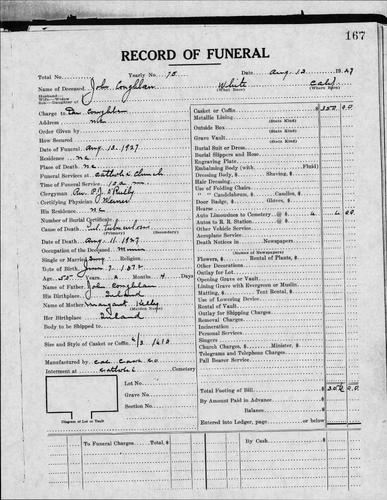 167
RECORD OF FUNERAL
Total No. Yearly No. 75 Date Aug. 12 1927
Name of Deceased John Coughlan White Calif
(What Race) (Where Born)
Husband—
Wife—Widow
Son—Daughter of
Charge to Dan Coughlan
Address N.C.
Order Given by
How Secured
Date of Funeral Aug. 13. 1927
Residence N.C.
Place of Death N.C.
Funeral Services at Catholic Church
Time of Funeral Service 10 a.m.
Clergyman Rev. P.J. O'Reilly
Certifying Physician
His Residence N.C.
Number of Burial Certificate
Cause of Death
(Primary) (Secondary)
Date of Death Aug. 11. 1927
Occupation of the Deceased Miner
Single or Married Sing Religion
Date of Birth June 7. 1872
Age 55 Years 2 Months 4 Days
Name of Father John Coughlan
His Birthplace Ireland
Name of Mother Margaret Kelly
(Maiden Name)
Her Birthplace Ireland
Body to be Shipped to
Size and Style of Casket or Coffin 6/3
Manufactured by Cal. Cas. Co
Interment at Catholic Cemetery
Lot No.
Grave No.
Section No.
Diagram of Lot or Vault
Casket or Coffin $
Metallic Lining
(State Kind)
Outside Box
(State Kind)
Grave Vault
(State Kind)
Burial Suit or Dress
Burial Slippers and Hose
Engraving Plate
Embalming Body (with Fluid)
Dressing Body, $ Shaving, $
Hair Dressing
Use of Folding Chairs
" " Candelabrum, $ Candles, $
Door Badge, $ Gloves, $
Hearse
Auto Limousines to Cemetery @ $
Autos to R. R. Station @ $
Other Vehicle Service
Aeroplane Service
Death Notices in Newspapers
(Names of Newspapers)
Flowers, $ Rental of Plants, $
Other Decorations
Outlay for Lot
Opening Grave or Vault
Lining Grave with Evergreen or Muslin
Matting, $ Tent Rental, $
Use of Lowering Device
Rental of Vault
Outlay for Shipping Charges
Removal Charges
Incineration
Personal Services
Singers
Church Charges, $ Minister, $
Telegrams and Telephone Charges
Pall Bearer Service
Total Footing of Bill $
By Amount Paid in Advance
Balance $
Entered into Ledger, page or below
To Funeral Charges Total, $
By Cash $